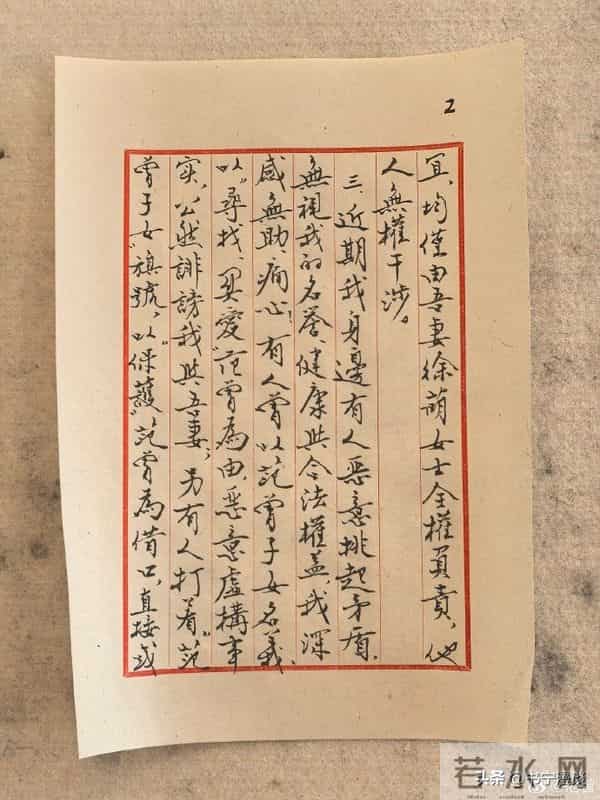 2
宜、均僅由吾妻徐萌女士全權負責，他
人無權干涉。
三、近期我身邊有人惡意挑起矛盾，
無視我的名譽、健康與合法權益，我深
感無助、痛心！有人曾以范曾子女名義、
以“尋找、關愛”范曾為由，惡意虛構事
实，公然誹謗我與吾妻，另有人打着“范
曾子女”旗號，以“保護”范曾為借口，直接或
若水网
头条